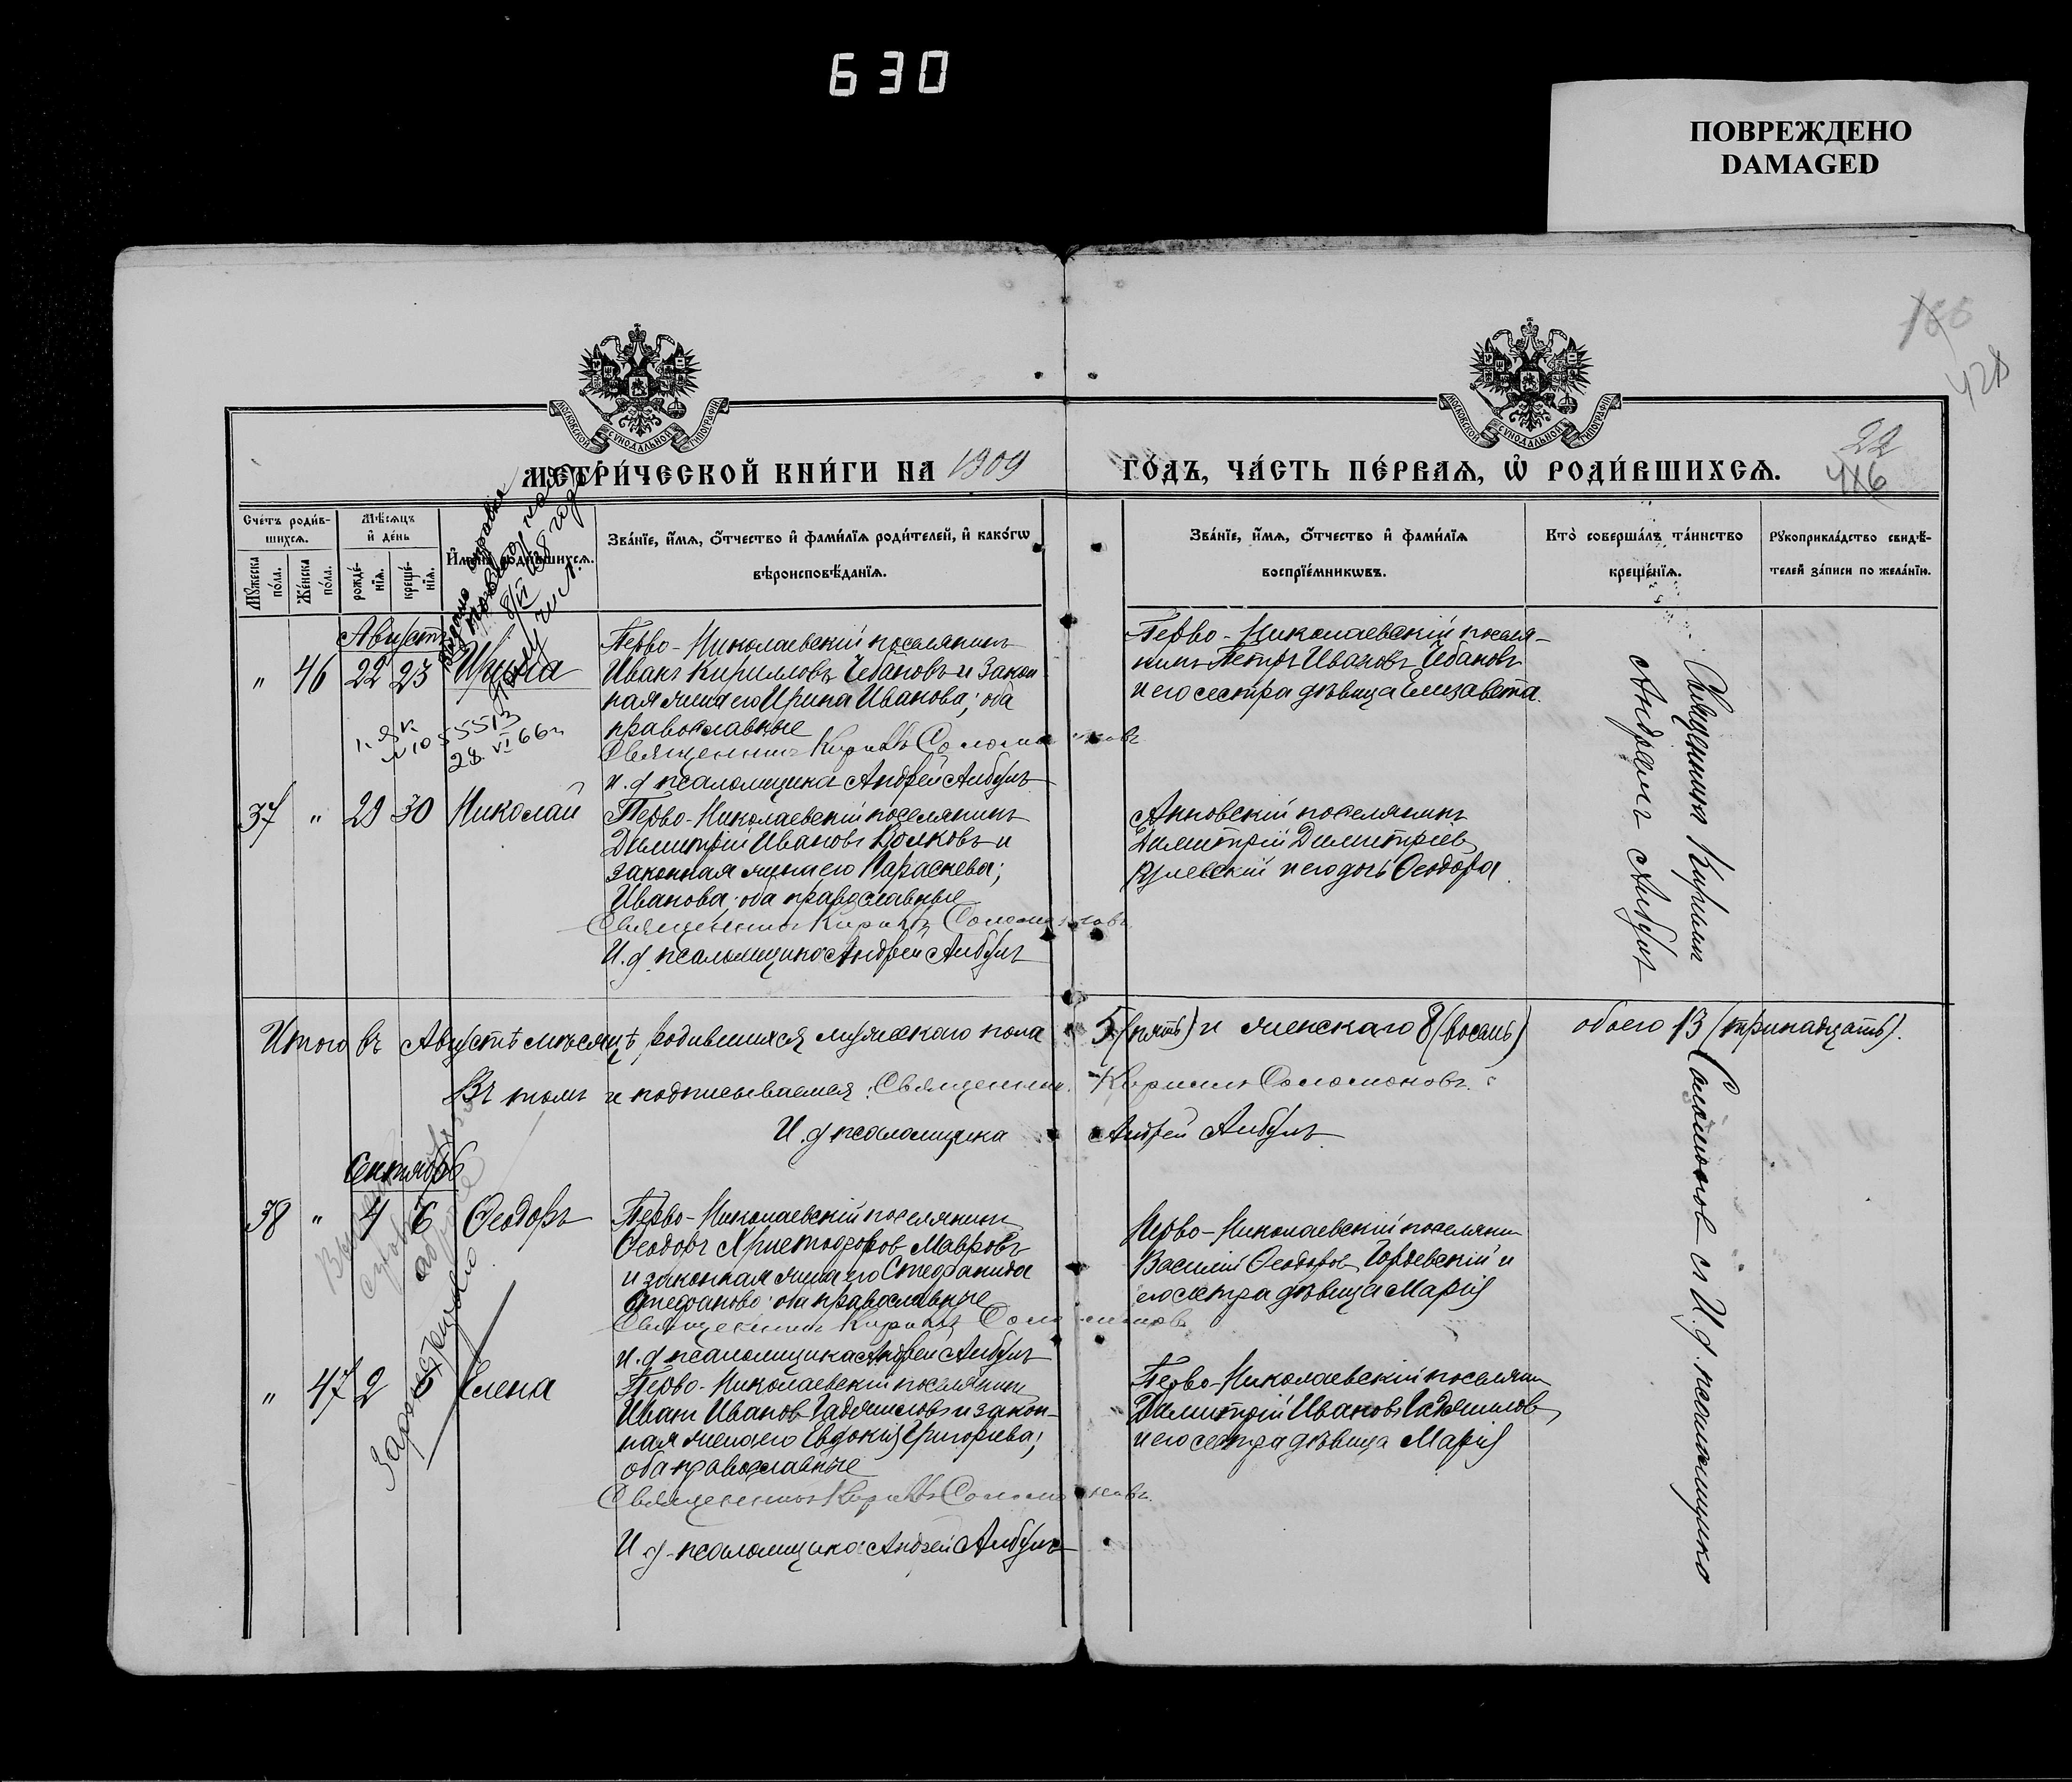 630
ПОВРЕЖДЕНО
DAMAGED
166
428
22
416
МОСКОВСКОЙ СѴНОДАЛЬНОЙ ТИПОГРАФІИ
МОСКОВСКОЙ СѴНОДАЛЬНОЙ ТИПОГРАФІИ
МЕТРИ́ЧЕСКОЙ КНИ́ГИ НА 1909
ГО́ДЪ, ЧА́СТЬ ПЕ́РВАѦ, Ѽ РОДИ́ВШИХСѦ.
Сче́тъ роди́в-
шихсѧ.
Мꙋ́жеска по́ла.
Же́нска по́ла.
Мѣ́сѧцъ
и҆ де́нь
рожде́-
нїѧ.
креще́-
нїѧ.
И҆мена̀ роди́вшихсѧ.
Зва́нїе, и҆́мѧ, ѻ҆́тчество и҆ фами́лїѧ роди́телей, и҆ како́гѡ
вѣроисповѣ́данїѧ.
Зва́нїе, и҆́мѧ, ѻ҆́тчество и҆ фами́лїѧ
воспрїе́мникѡвъ.
Кто̀ соверша́лъ та́инство
креще́нїѧ.
Рꙋкоприкла́дство свидѣ́-
телей за́писи по жела́нїю.
Августъ
" 46 22 23 Ирина
Перво-Николаевскій поселянинъ
Иванъ Кирилловъ Чебановъ и закон
ная жена его Ирина Иванова; оба
православные
Священникъ Кириллъ Соломоновъ
и.д псаломщика Андрей Анбулъ
Перво-Николаевскій поселя-
нинъ Петръ Ивановъ Чебановъ
и его сестра дѣвица Елизавета.
Священникъ Кириллъ Соломоновъ съ И.д. псаломщика
Андреемъ Анбулъ
8/VI 1938 года
1055513
28. VI 66 г
37 " 29 30 Николай
Перво-Николаевскій поселянинъ
Димитрій Ивановъ Волковъ и
законная жена его Параскева;
Иванова; оба православные
Священникъ Кириллъ Соломоновъ
И.д псаломщика Андрей Анбулъ
Анновскій поселянинъ
Димитрій Димитріев
и его дочь Ѳеодора.
Итого въ Августѣ мѣсяцѣ родившихся мужескаго пола 5 (пять) и женскаго 8 (восемь) обоего 13 (тринадцать).
Въ томъ и подписываемся: Священник. Кириллъ Соломоновъ.
И.д псаломщика Андрей Анбулъ
Сентябрь
38 " 4 6 Ѳеодоръ
Перво-Николаевскій поселянинъ
Ѳеодоръ Христофоров Мавровъ
и законная жена его Стефанида
Стефанова; оба православные
Священникъ Кириллъ Соломоновъ
и.д псаломщика Андрей Анбулъ
Перво-Николаевскій поселянин
Василій Ѳеодоров и
его сестра дѣвица Марія
" 47 2 6 Елена
Перво-Николаевскій поселянин
Иванъ Иванов и закон-
ная жена его Евдокія Григорьева;
оба православные
Священникъ Кириллъ Соломоновъ
И.д. псаломщика Андрей Анбулъ
Перво-Николаевскій поселянин
Димитрій Ивановъ
и его сестра дѣвица Марія